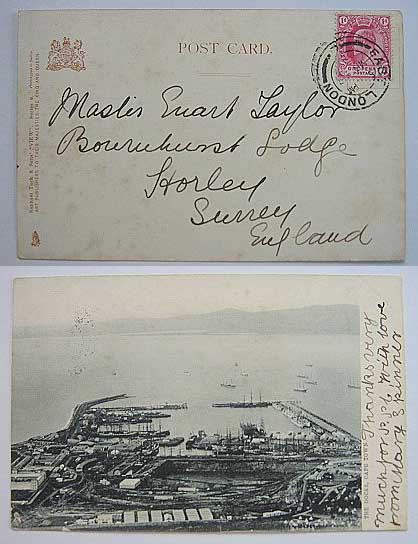 POST CARD.
Raphael Tuck & Sons' "VIEW"
ART PUBLISHERS TO THEIR MAJESTIES THE KING AND QUEEN
1d 1d
EAST LONDON
Master Evart Taylor
Bournhurst Lodge
Horley
Surrey
England
THE DOCKS, CAPE TOWN.
Thanks very
much for p.c. With love
from Mary E Skinner